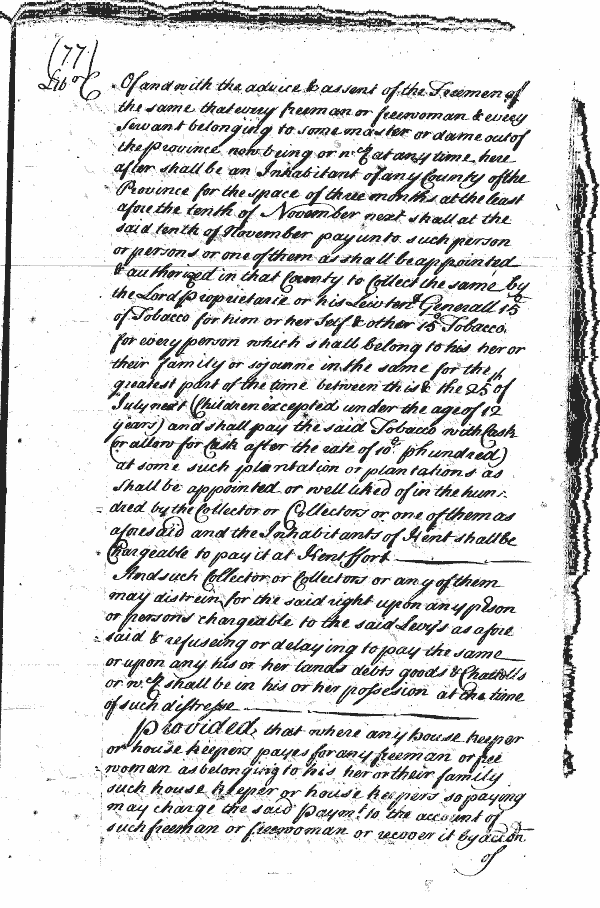 (77)
Lib.r C
Of and with the advice & assent of the Freemen of
the same that every freeman or freewoman & every
Servant belonging to some master or dame out of
the Province now being or wch at any time here
after shall be an Inhabitant of any County of the
Province for the space of three months at the least
afore the tenth of November next shall at the
said tenth of November pay unto such person
or persons or one of them as shall be appointed
& authorized in that County to Collect the same by
the Lord Proprietarie or his Lewtent Generall 15
of Tobacco for him or her Self & other 15 Tobacco
for every person which shall belong to his her or
their family or sojourne in the same for the
greatest part of the time between this & the 25th of
July next (Children excepted under the age of 12
years) and shall pay the said Tobacco with Cask
(or allow for Cask after the rate of 10 p hundred)
at some such plantation or plantations as
shall be appointed or well liked of in the hun:
dred by the Collector or Collectors or one of them as
aforesaid and the Inhabitants of Kent shall be
Chargeable to pay it at Kent ffort
And such Collector or Collectors or any of them
may distrein for the said right upon any pson
or persons chargeable to the said Levy's as afore
said & refuseing or delaying to pay the same
or upon any his or her lands debts goods & Chattells
or wch shall be in his or her possesion at the time
of such distresse
Provided, that where any house keeper
or house keepers payes for any freeman or free
woman as belonging to his her or their family
such house keeper or house keepers so paying
may charge the said Paymt. to the account of
such freeman or freewoman or recover it by accon
of